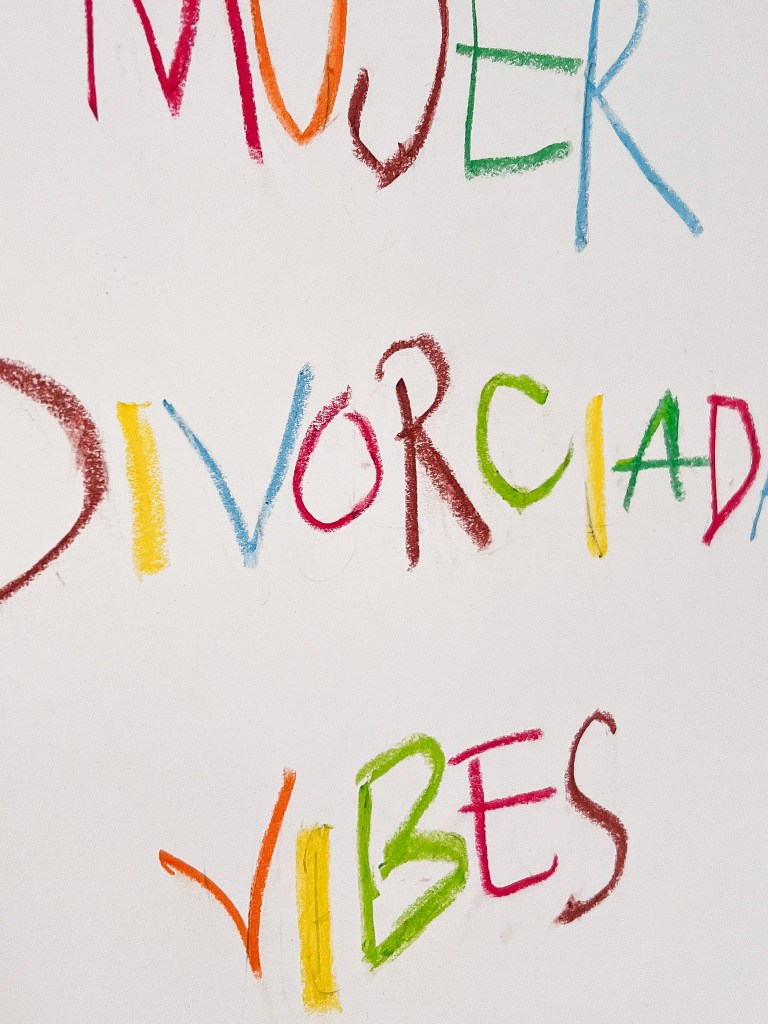 MUJER
DIVORCIADA
VIBES